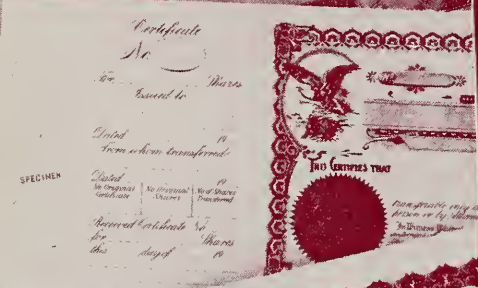 Certificate
No.
For Shares
Issued to
Dated 19
From whom transferred
Dated 19
No Original Certificate No Original Shares No of Shares Transferred
Received Certificate No
for Shares
this day of 19
SPECIMEN
THIS CERTIFIES THAT
Transferable only
person or by
In Witness